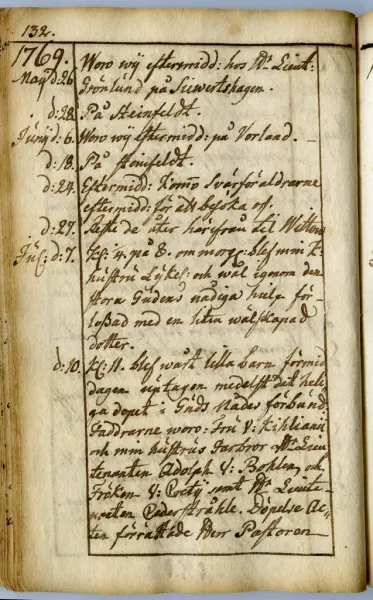 132.
1769.
Maÿ d: 26. Woro wÿ eftermidd: hos Hr Lieut:
Grönlund på Siewertshagen.
d: 28. På Steinfeldt.
Junÿ d: 6. Woro wÿ eftermidd: på Vorland.
d: 18. På Stenfeldt.
d: 24. Eftermidd: Komo Svärföräldrarne
eftermidd: för att besöka oss.
d: 27. de åter härifrån til
Jul: d: 7. Kl: 4 på 8. om morg: blef min K:
hustru Lykel: och wäl igenom den
stora Gudens nådiga hielp för-
loßad med en liten wälskapad
dotter.
d: 10. Kl: 11. blef wårt lilla barn förmid-
dagen uptagen medelst det heli-
ga dopet i Guds Nådes förbund
Faddrarne woro: Fru V:
och min hustrus Farbror Hr Lieu-
tenanten Adolph V: Bohlen, och
Fröken V: samt Hr Lieute-
nanten Cederstråhle. Döpelse Ac-
ten förrättade Herr Pastoren